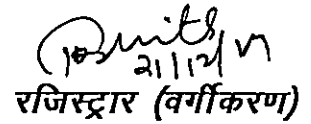 21/12/17
रजिस्ट्रार (वर्गीकरण)